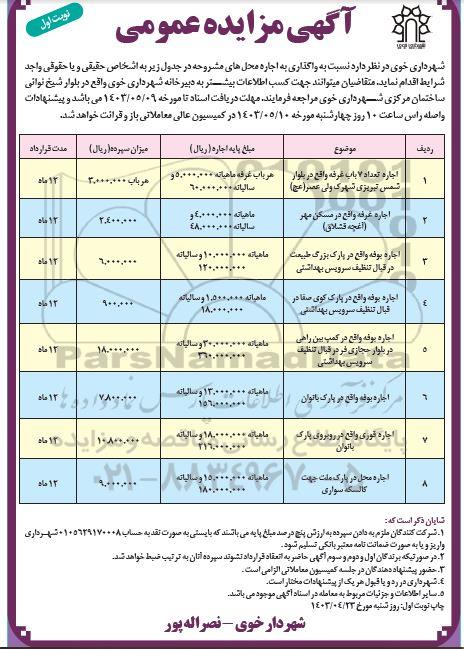 آگهی مزایده عمومی
نوبت اول
شهرداری خوی
شهرداری خوی در نظر دارد نسبت به واگذاری به اجاره محل های مشروحه در جدول زیر به اشخاص حقیقی و یا حقوقی واجد
شرایط اقدام نماید. متقاضیان میتوانند جهت کسب اطلاعات بیشتر به دبیرخانه شهرداری خوی واقع در بلوار شیخ نوائی
ساختمان مرکزی شهرداری خوی مراجعه فرمایند. مهلت دریافت اسناد تا مورخه ۱۴۰۳/۰۵/۰۹ می باشد و پیشنهادات
واصله راس ساعت ۱۰ روز چهارشنبه مورخه ۱۴۰۳/۰۵/۱۰ در کمیسیون عالی معاملاتی باز و قرائت خواهد شد.
ردیف موضوع مبلغ پایه اجاره (ریال) میزان سپرده (ریال) مدت قرارداد
۱ اجاره تعداد ۷ باب غرفه واقع در بلوار هر باب غرفه ماهیانه ۵,۰۰۰,۰۰۰ و هر باب ۳,۰۰۰,۰۰۰ ۱۲ ماه
شمس تبریزی شهرک ولی عصر(عج) سالیانه ۶۰,۰۰۰,۰۰۰
۲ اجاره غرفه واقع در مسکن مهر ماهیانه ۴,۰۰۰,۰۰۰ و ۲,۴۰۰,۰۰۰ ۱۲ ماه
(آغچه قشلاق) سالیانه ۴۸,۰۰۰,۰۰۰
۳ اجاره بوفه واقع در پارک بزرگ طبیعت ماهیانه ۱۰,۰۰۰,۰۰۰ و سالیانه ۶,۰۰۰,۰۰۰ ۱۲ ماه
در قبال تنظیف سرویس بهداشتی ۱۲۰,۰۰۰,۰۰۰
۴ اجاره بوفه واقع در پارک کوی صفا در ماهیانه ۱,۵۰۰,۰۰۰ و سالیانه ۹۰۰,۰۰۰ ۱۲ ماه
قبال تنظیف سرویس بهداشتی ۱۸,۰۰۰,۰۰۰
۵ اجاره بوفه واقع در کمپ بین راهی ماهیانه ۳۰,۰۰۰,۰۰۰ و سالیانه ۱۸,۰۰۰,۰۰۰ ۱۲ ماه
در بلوار حجازی فر در قبال تنظیف ۳۶۰,۰۰۰,۰۰۰
سرویس بهداشتی
۶ اجاره بوفه واقع در پارک بانوان ماهیانه ۱۳,۰۰۰,۰۰۰ و سالیانه ۷,۸۰۰,۰۰۰ ۱۲ ماه
۱۵۶,۰۰۰,۰۰۰
۷ اجاره قوری واقع در روبروی پارک ماهیانه ۱۸,۰۰۰,۰۰۰ و سالیانه ۱۰,۸۰۰,۰۰۰ ۱۲ ماه
بانوان ۲۱۶,۰۰۰,۰۰۰
۸ اجاره محل در پارک ملت جهت ماهیانه ۱۵,۰۰۰,۰۰۰ و سالیانه ۹,۰۰۰,۰۰۰ ۱۲ ماه
کالسکه سواری ۱۸۰,۰۰۰,۰۰۰
ParsNamadData
۰۲۱-۸۸۳۴۹۶۷۰-۵
شایان ذکر است که:
۱. شرکت کنندگان ملزم به دادن سپرده به ارزش پنج درصد مبلغ پایه می باشند که بایستی به صورت نقد به حساب ۰۱۰۵۶۲۹۱۷۰۰۰۸ شهرداری
واریز و یا به صورت ضمانت نامه معتبر بانکی تسلیم شود.
۲. در صورتیکه برندگان اول و دوم و سوم آگهی حاضر به انعقاد قرارداد نشوند سپرده آنان به ترتیب ضبط خواهد شد.
۳. حضور پیشنهاد دهندگان در جلسه کمیسیون معاملاتی الزامی است.
۴. شهرداری در رد و یا قبول هر یک از پیشنهادات مختار است.
۵. سایر اطلاعات و جزئیات مربوط به معامله در اسناد آگهی موجود می باشد.
چاپ نوبت اول: روز شنبه مورخ ۱۴۰۳/۰۴/۲۳
شهردار خوی – نصراله پور